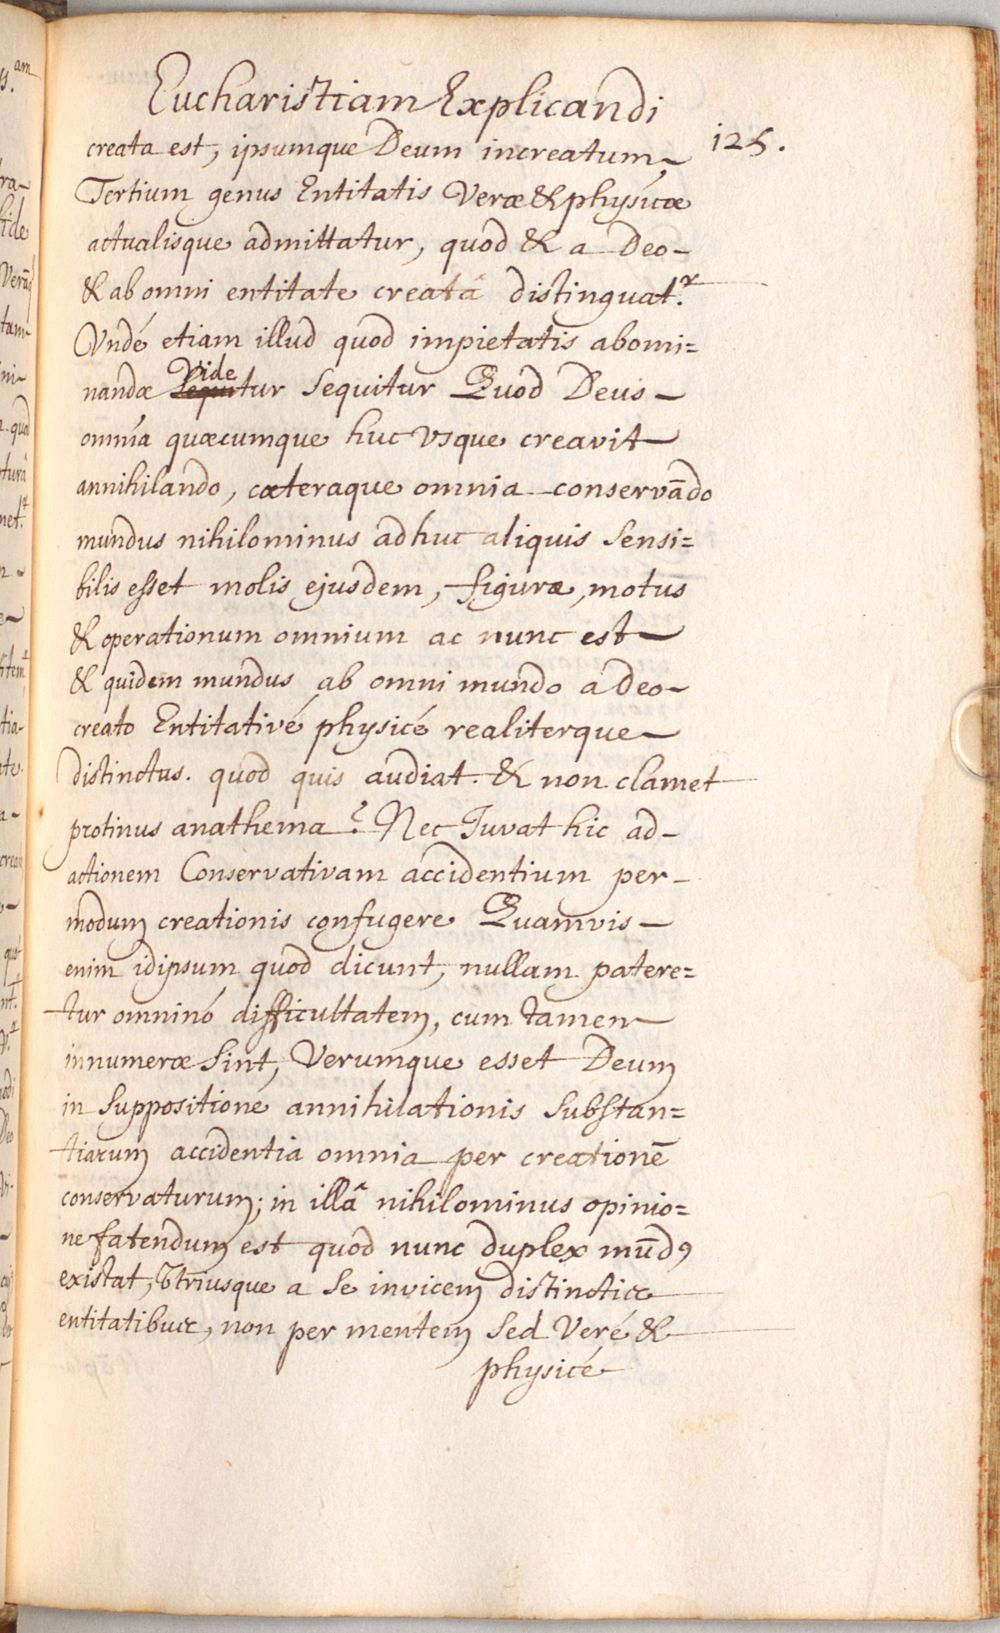 Eucharistiam Explicandi
125.
creata est, ipsumque Deum increatum,
Tertium genus Entitatis Veræ & physicæ
actualisque admittatur, quod & a Deo-
& ab omni entitate creatâ distinguat.r
Vndé etiam illud quod impietatis abomi=
nandæ Videtur Sequitur Quod Deus-
omnia quæcumque huc Vsque creavit
annihilando, cæteraque omnia conservādo
mundus nihilominus adhuc aliquis Sensi=
bilis esset molis ejusdem, figuræ, motus
& operationum omnium ac nunc est-
& quidem mundus ab omni mundo a Deo-
creato Entitativé physicé realiterque-
distinctus. quod quis audiat. & non clamet
protinus anathema? Nec Juvat hic ad-
actionem Conservativam accidentium per-
modum creationis confugere Quamvis-
enim idipsum quod dicunt, nullam patere=
tur omninó difficultatem, cum tamen
innumeræ Sint, Verumque esset Deum
in Suppositione annihilationis Substan=
tiarum accidentia omnia per creationē
conservaturum; in illâ nihilominus opinio=
ne fatendum est quod nunc duplex mūdꝯ
existat, Vtriusque a Se invicem distinctis
entitatibus, non per mentem Sed Veré &
physicé